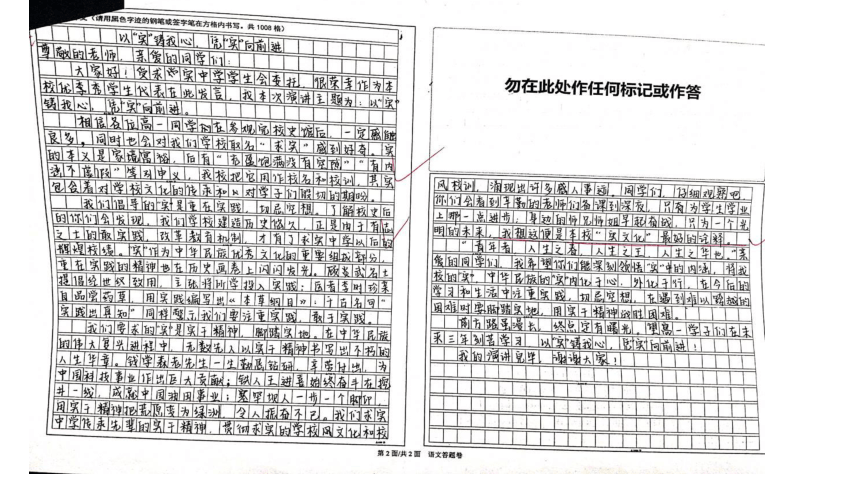 文（请用黑色字迹的钢笔或签字笔在方格内书写。共1008格）
以“实”铸我心，凭“实”向前进
尊敬的老师，亲爱的同学们：
大家好！受求实中学学生会委托，很荣幸作为本
校优秀学生代表在此发言，我本次演讲主题为：以“实”
铸我心，凭“实”向前进。
相信各位高一同学们在参观完校史馆后，一定感触
良多，同时也会对我们学校取名“求实”感到好奇。实
的本义是家境富裕，后有“充盈饱满没有空隙”“有内
涵不虚伪”等引申义，我校把它用作校名和校训，其实
包含着对学校文化的传承和对学子们殷切的期盼。
我们倡导的“实”是重在实践，切忌空想。了解校史后
的你们会发现，我们学校建造历史悠久，正是由于有
之士的敢实践，改革教育机制，才有了求实中学以后的
辉煌校绩。“实”作为中华民族优秀文化的重要组成部分，
重在实践的精神也在历史画卷上闪闪发光。顾炎武名士
提倡经世致用，主张将所学投入实践；医者李时珍亲
自品尝药草，用实践编写出《本草纲目》；千古名句“
实践出真知”同样警示我们要注重实践，敢于实践。
我们要求的“实”是实干精神，脚踏实地。在中华民族
的伟大复兴进程中，无数先人以实干精神书写出不朽的
人生华章。钱学森老先生一生勤恳钻研，辛劳付出，为
中国科技事业作出巨大贡献；铁人王进喜始终奋斗在挖
井一线，成就中国油田事业；塞罕坝人一步一个脚印，
用实干精神把荒原变为绿洲，令人振奋不已。我们求实
中学传承先辈的实干精神，贯彻求实的学校风文化和校
第2面/共2面 语文答题卷
勿在此处作任何标记或作答
风校训，涌现出许多感人事迹，同学们，仔细观察吧
你们会看到辛勤的老师们备课到深夜，只为学生学业
上哪一点进步，身边的师兄师姐早起夜战，只为一个光
明的未来，我想这便是本校“实文化”最好的诠释。
“青年者，人生之春，人生之王，人生之华也。”亲
爱的同学们，我希望你们能深刻领悟“实”中的内涵，将我
校的“实”，中华民族的“实”内化于心，外化于行，在今后的
学习和生活中注重实践，切忌空想，在遇到难以跨越的
困难时要脚踏实地，用实干精神战胜困难。
前方路虽漫长，终点定有曙光。望高一学子们在未
来三年刻苦学习，以“实”铸我心，凭“实”向前进！
我的演讲完毕，谢谢大家！